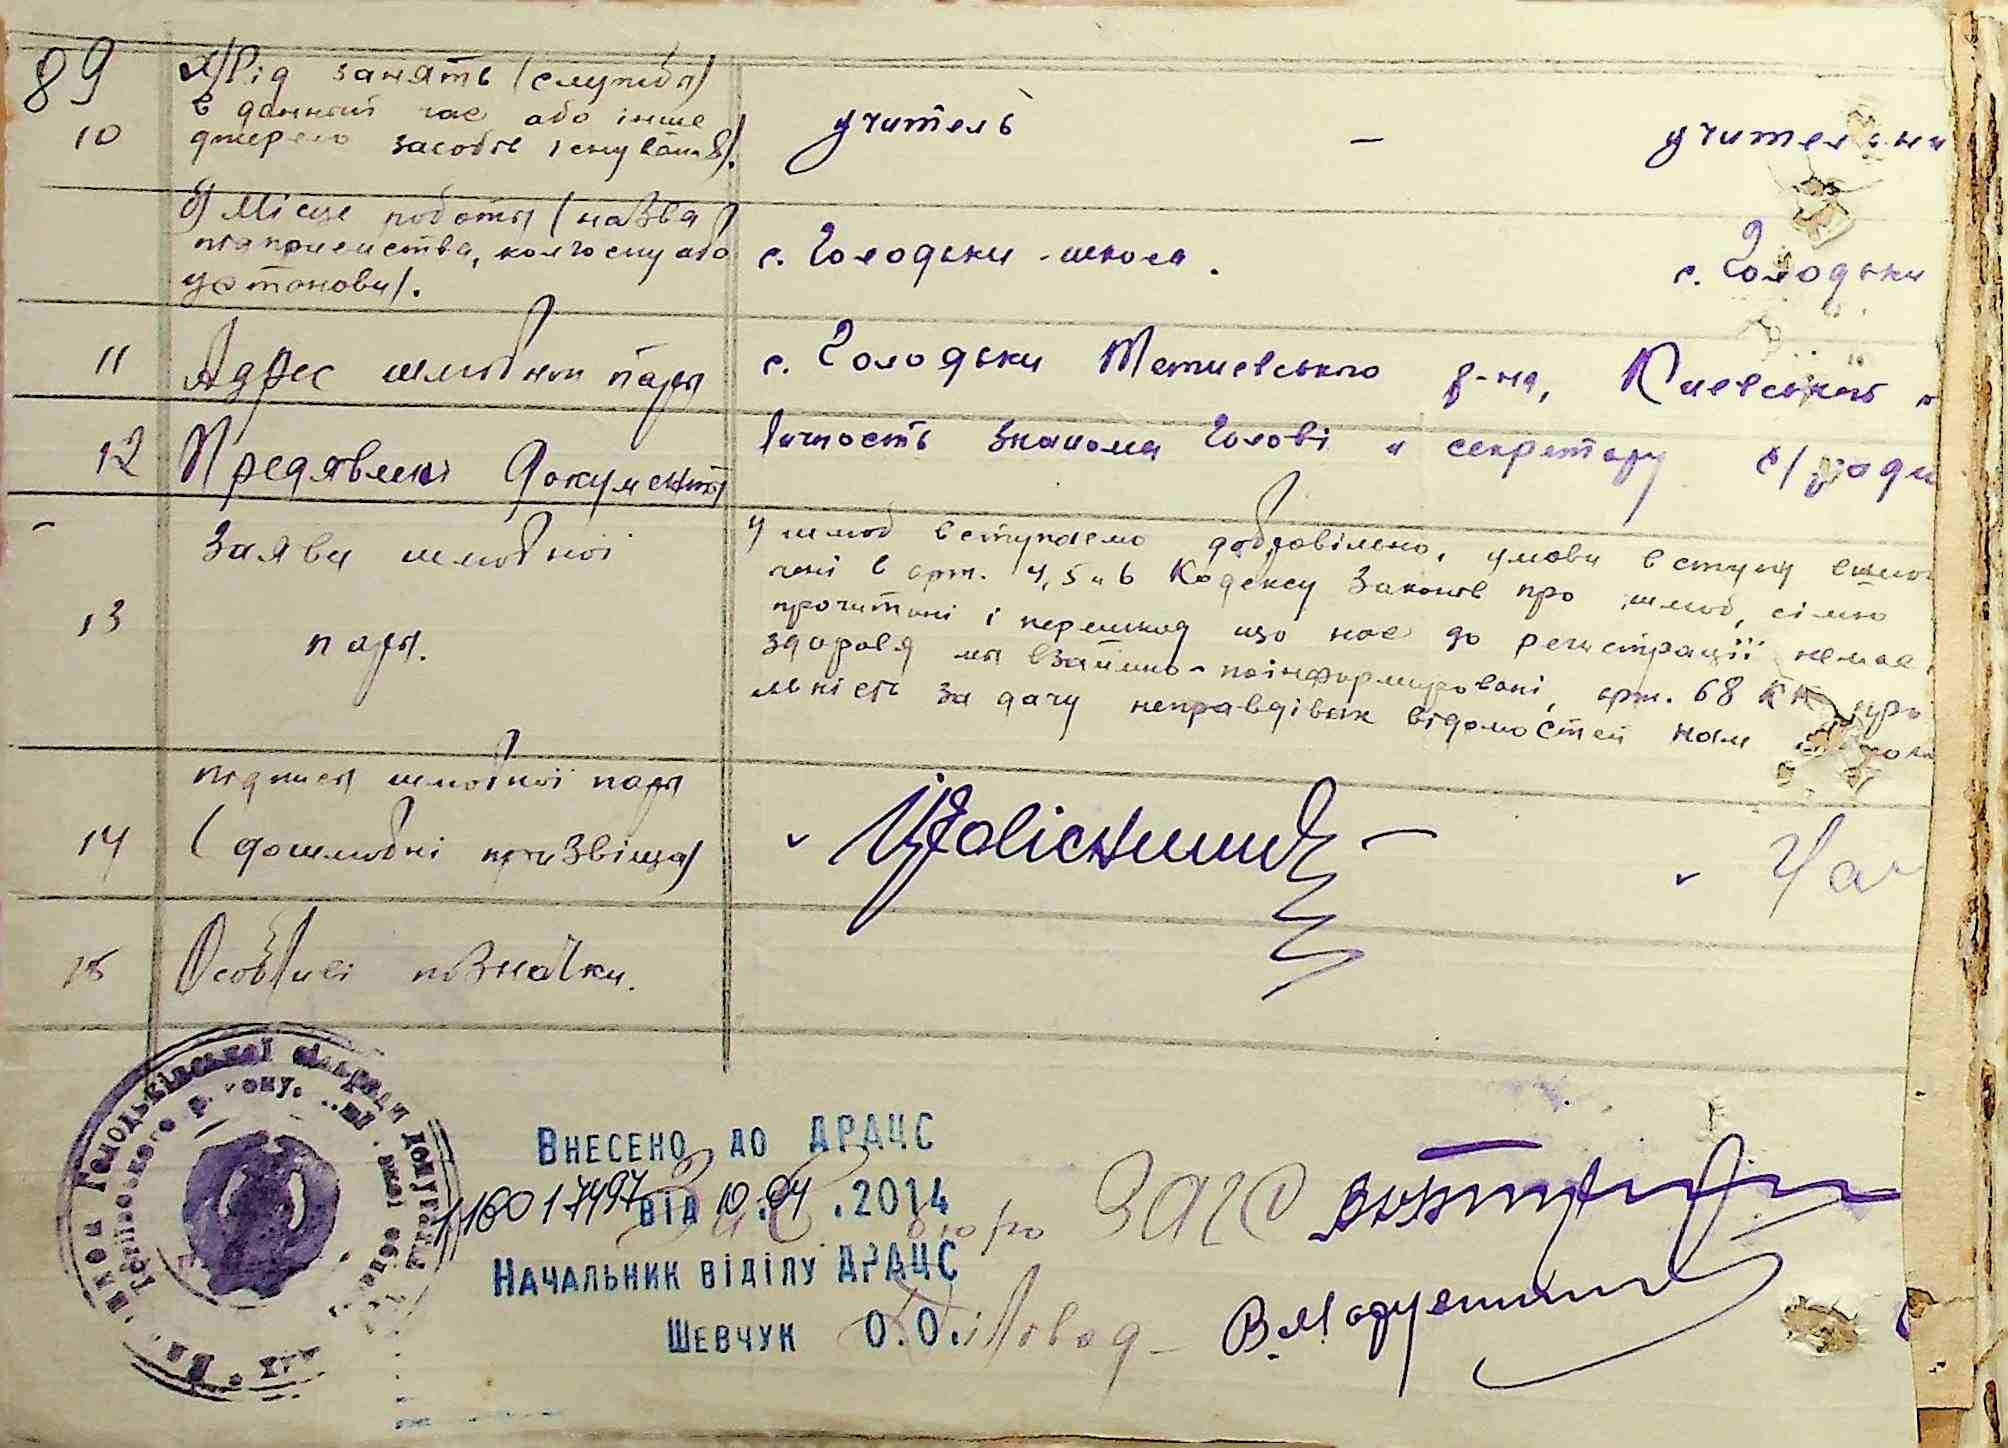 89
10
а) Рід занять (служба)
в данний час або інше
джерело засобів існування).
учитель — учительк
б) Місце роботы (назва
підприємства, колгоспу або
установи).
с. Голодьки - школа. с. Голодьки
11 Адрес шлюбної пары
с. Голодьки Тетиевського р-на, Киевської о
12 Предявлені документы
Личность знакома голові и секретару с/ради
13 Заява шлюбної
пары.
У шлюб вступаемо добровільно, умови вступу в шлю
чені в арт. 4, 5 и 6 Кодексу Законів про шлюб, сімю
прочитані і перешкод що нас до регистрації немає,
здоровя мы взаимно-поінформировані, арт. 68 КК про
льність за дачу неправдівых відомостей нам
14 підписы шлюбної пары
(дошлюбні призвіща)
15 Особливі позначки.
Голодьківської сільради депутатів
Тетіївського району,
Внесено до ДРАЦС
від 10.04.2014
Начальник відділу ДРАЦС
Шевчук О.О.
Зав бюро ЗАГС
Діловод -